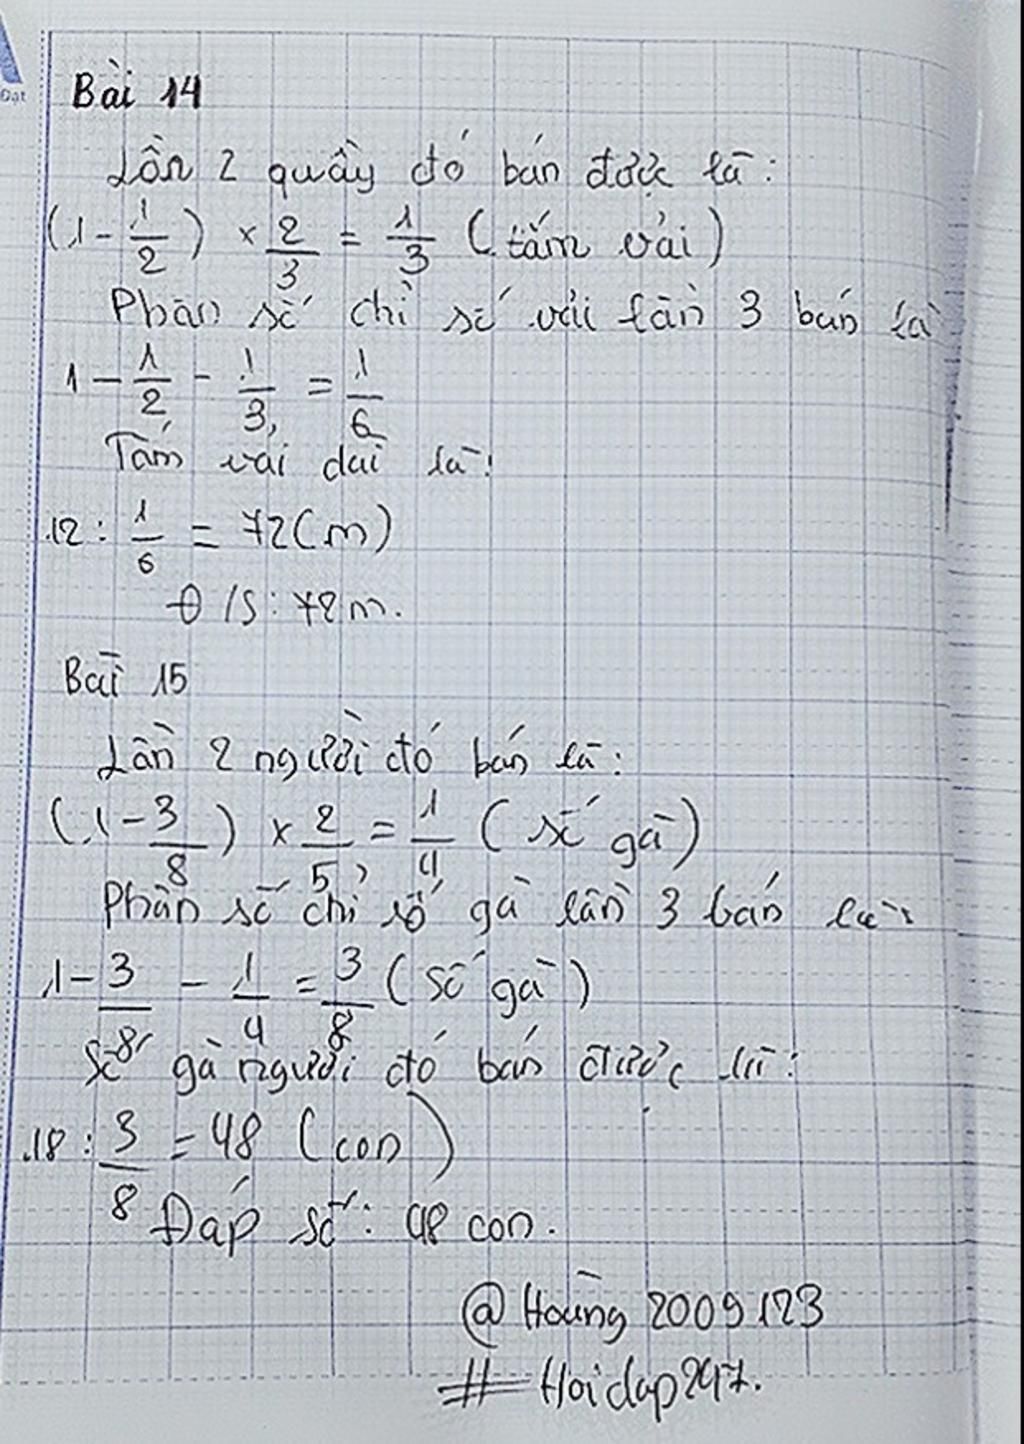 Đạt
Bài 14
Lần 2 quầy đó bán được là:
(1 - 1/2) × 2/3 = 1/3 (tấm vải)
Phân số chỉ số vải lần 3 bán là
1 - 1/2 - 1/3 = 1/6
Tấm vải dài là:
12 : 1/6 = 72 (m)
Đ/S: 72m.
Bài 15
Lần 2 người đó bán là:
(1 - 3/8) × 2/5 = 1/4 (số gà)
Phân số chỉ số gà lần 3 bán là:
1 - 3/8 - 1/4 = 3/8 (số gà)
Số gà người đó bán được là:
18 : 3/8 = 48 (con)
Đáp số: 48 con.
@Hoàng2009123
#Hoidap247.